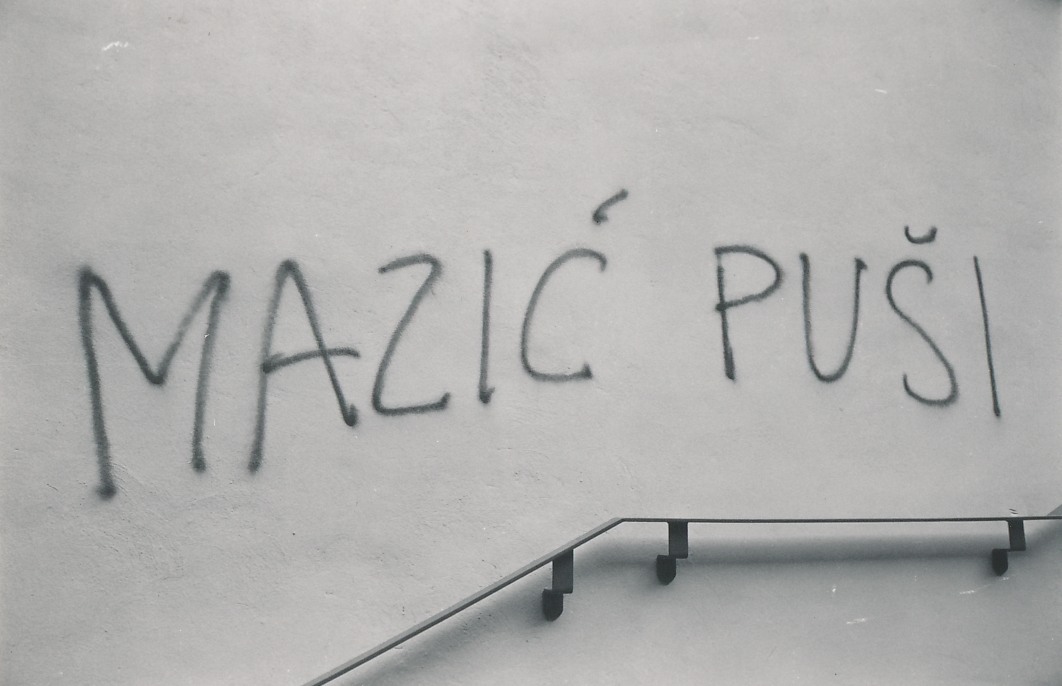 MAZIĆ PUŠI